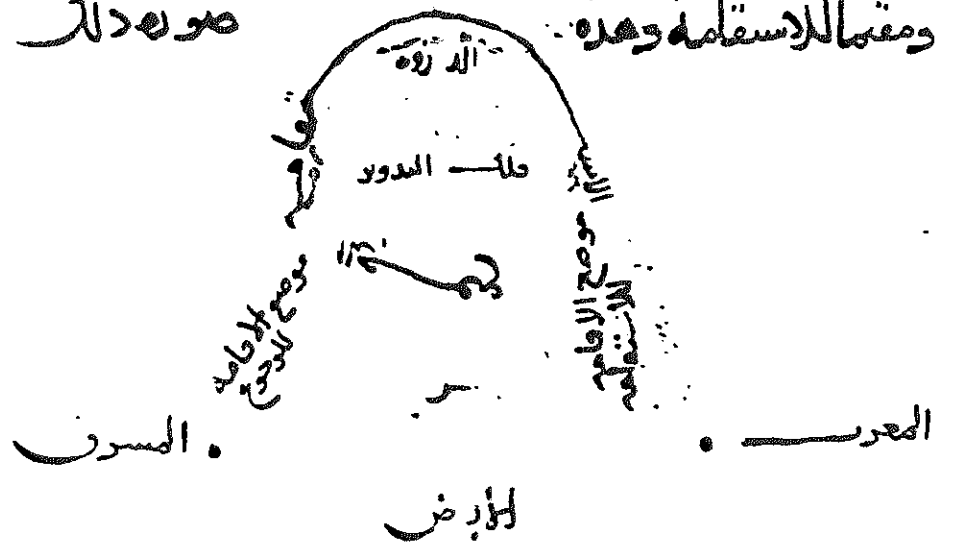 ومقيما للاستقامة وهذه صورة ذلك
الذروة
فلك التدوير
موضع الاقامة
للاستقامة
موضع الاقامة
للرجوع
المغرب
المشرق
الأرض